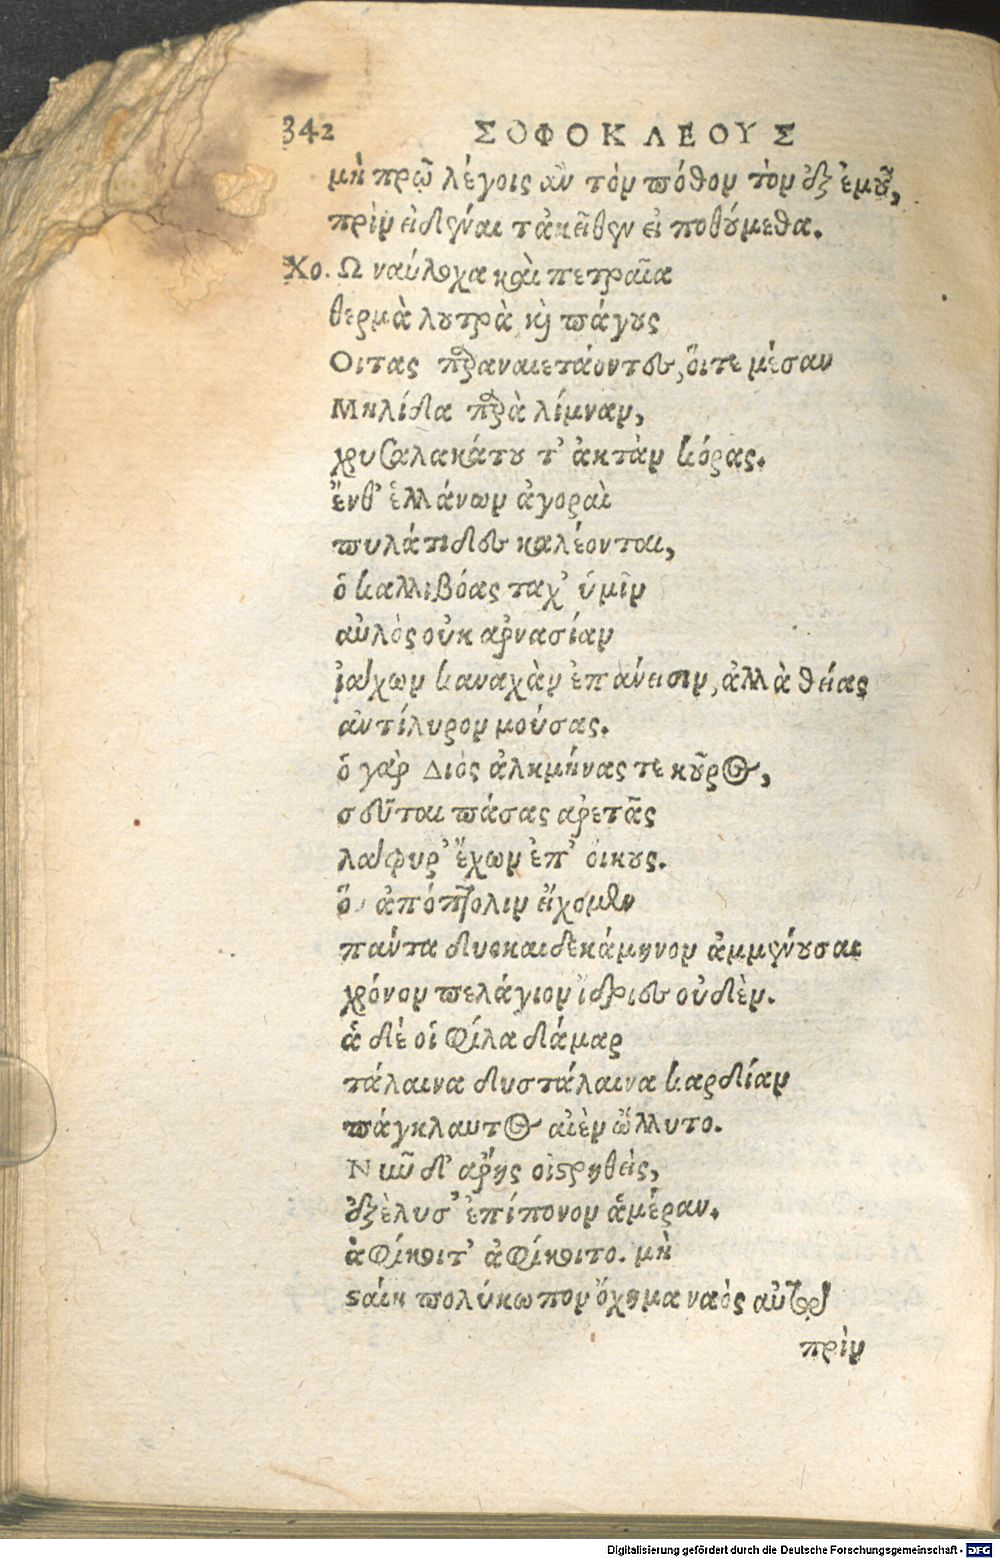 342 ΣΟΦΟΚΛΕΟΥΣ
μὴ πρῲ λέγοις ἂν τὸν πόθον τὸν ἐξ ἐμοῦ,
πρὶν εἰδέναι τἀκεῖθεν εἰ ποθούμεθα.
Χο. Ω ναύλοχα καὶ πετραῖα
θερμὰ λουτρὰ καὶ πάγους
Οιτας παραναιετάοντες, ὅιτε μέσαν
Μηλίδα παρὰ λίμναν,
χρυσαλακάτου τ' ἀκτὰν κόρας.
ἔνθ' ἑλλάνων ἀγοραὶ
πυλάτιδες καλέονται,
ὁ καλλιβόας ταχ' ὑμῖν
αὐλὸς οὐκ ἀρνασίαν
ἰάχων καναχὰν ἐπάνεισιν, ἀλλὰ θείας
ἀντίλυρον μούσας.
ὁ γὰρ Διὸς ἀλκμήνας τε κοῦρος,
σεῦται πάσας ἀρετᾶς
λάφυρ' ἔχων ἐπ' οἴκους.
ὃ ἀπόπτολιν εἴχομεν
πάντα δυοκαιδεκάμηνον ἀμμένουσαι
χρόνον πελάγιον ἴδριες οὐδὲν.
ἁ δέ οἱ φίλα δάμαρ
τάλαινα δυστάλαινα καρδίαν
πάγκλαυτος αἰὲν ὤλλυτο.
Νῦν δ' ἄρης οἰστρηθεὶς,
ἐξέλυσ' ἐπίπονον ἁμέραν.
ἀφίκοιτ' ἀφίκοιτο. μὴ
σταίη πολύκωπον ὄχημα ναὸς αὐτῷ
πρὶν
Digitalisierung gefördert durch die Deutsche Forschungsgemeinschaft - DFG